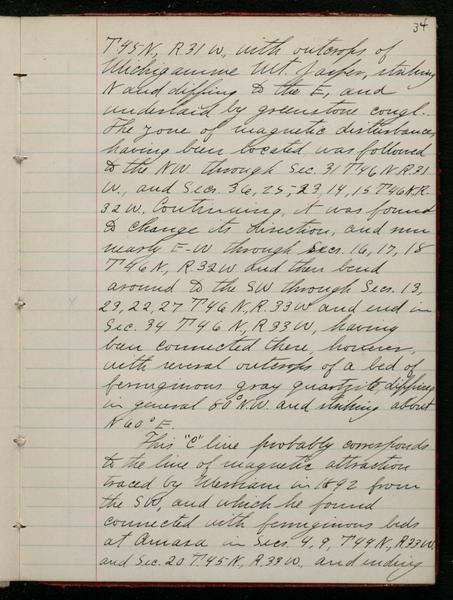 34
T45N, R31W, with outcrops of
Michigamme Mt. Jasper, striking
N and dipping to the E, and
underlaid by greenstone congl.
The zone of magnetic disturbances
having been located was followed
to the NW through Sec. 31 T46N R31
W, and Secs. 36, 25, 23, 14, 15 T46N R.
32W. Continuing, it was found
to change its direction, and run
nearly E-W through Secs. 16, 17, 18
T46N, R.32W and then bend
around to the SW through Secs. 13,
23, 22, 27 T46N, R.33W and end in
Sec. 34 T46N, R33W, having
been connected there, however,
with several outcrops of a bed of
ferruginous gray quartzite dipping
in general 80° N.W. and striking about
N60°E.
This "C" line probably corresponds
to the line of magnetic attraction
traced by in 1892 from
the SW, and which he found
connected with ferruginous beds
at Amasa in Secs. 4, 9, T44N, R33W
and Sec. 20 T45N, R.33W, and ending